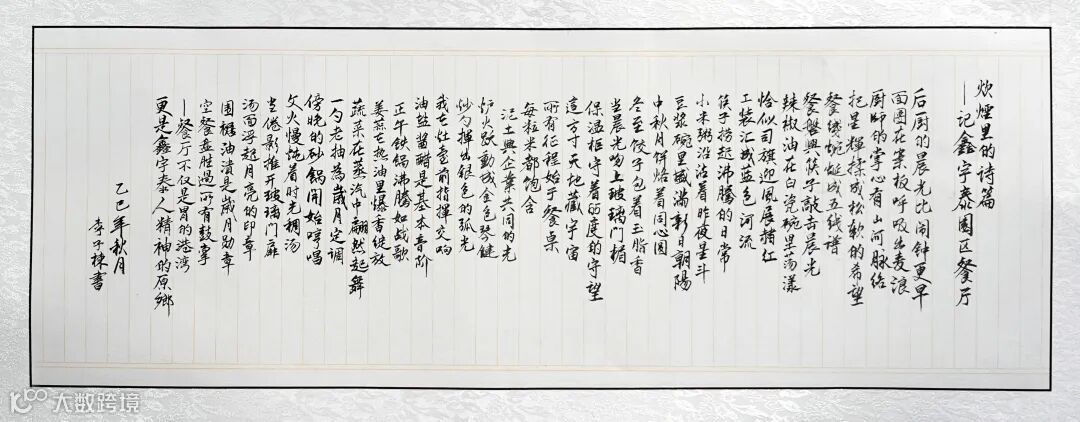 炊煙里的诗篇
——记鑫宇泰園区餐厅
后厨的晨光比闹钟更早
面團在案板呼吸出麦浪
厨师的掌心有山河脉络
把星辉揉成松软的希望
餐线蜿蜒成五线谱
餐盤與筷子敲击晨光
辣椒油在白瓷碗里荡漾
恰似司旗迎风展赭红
工装汇成蓝色河流
筷子捞起沸騰的日常
小米粥沿沾着昨夜星斗
豆漿碗里盛满新日朝陽
中秋月饼烙着同心圆
冬至餃子包着玉脂香
当晨光吻上玻璃門楣
保温柜守着65度的守望
這方寸天地藏宇宙
所有征程始于餐桌
每粒米都饱含
泥土與企業共同的光
炉火跃動成金色琴鍵
炒勺揮出銀色的弧光
我在灶臺前指揮交响
油盐醬醋是基本音階
正午铁鍋沸腾如战歌
姜蒜在热油里爆香绽放
蔬菜在蒸汽中翩然起舞
一勺老抽為歲月定調
傍晚的砂鍋開始哼唱
文火慢炖着时光稠汤
当倦影推开玻璃門扉
汤面浮起月亮的印章
围裙油漬是歲月勋章
空餐盘胜過所有鼓掌
——餐厅不仅是胃的港湾
更是鑫宇泰人精神的原鄉
乙巳年秋月
李子栋書
大数跨境